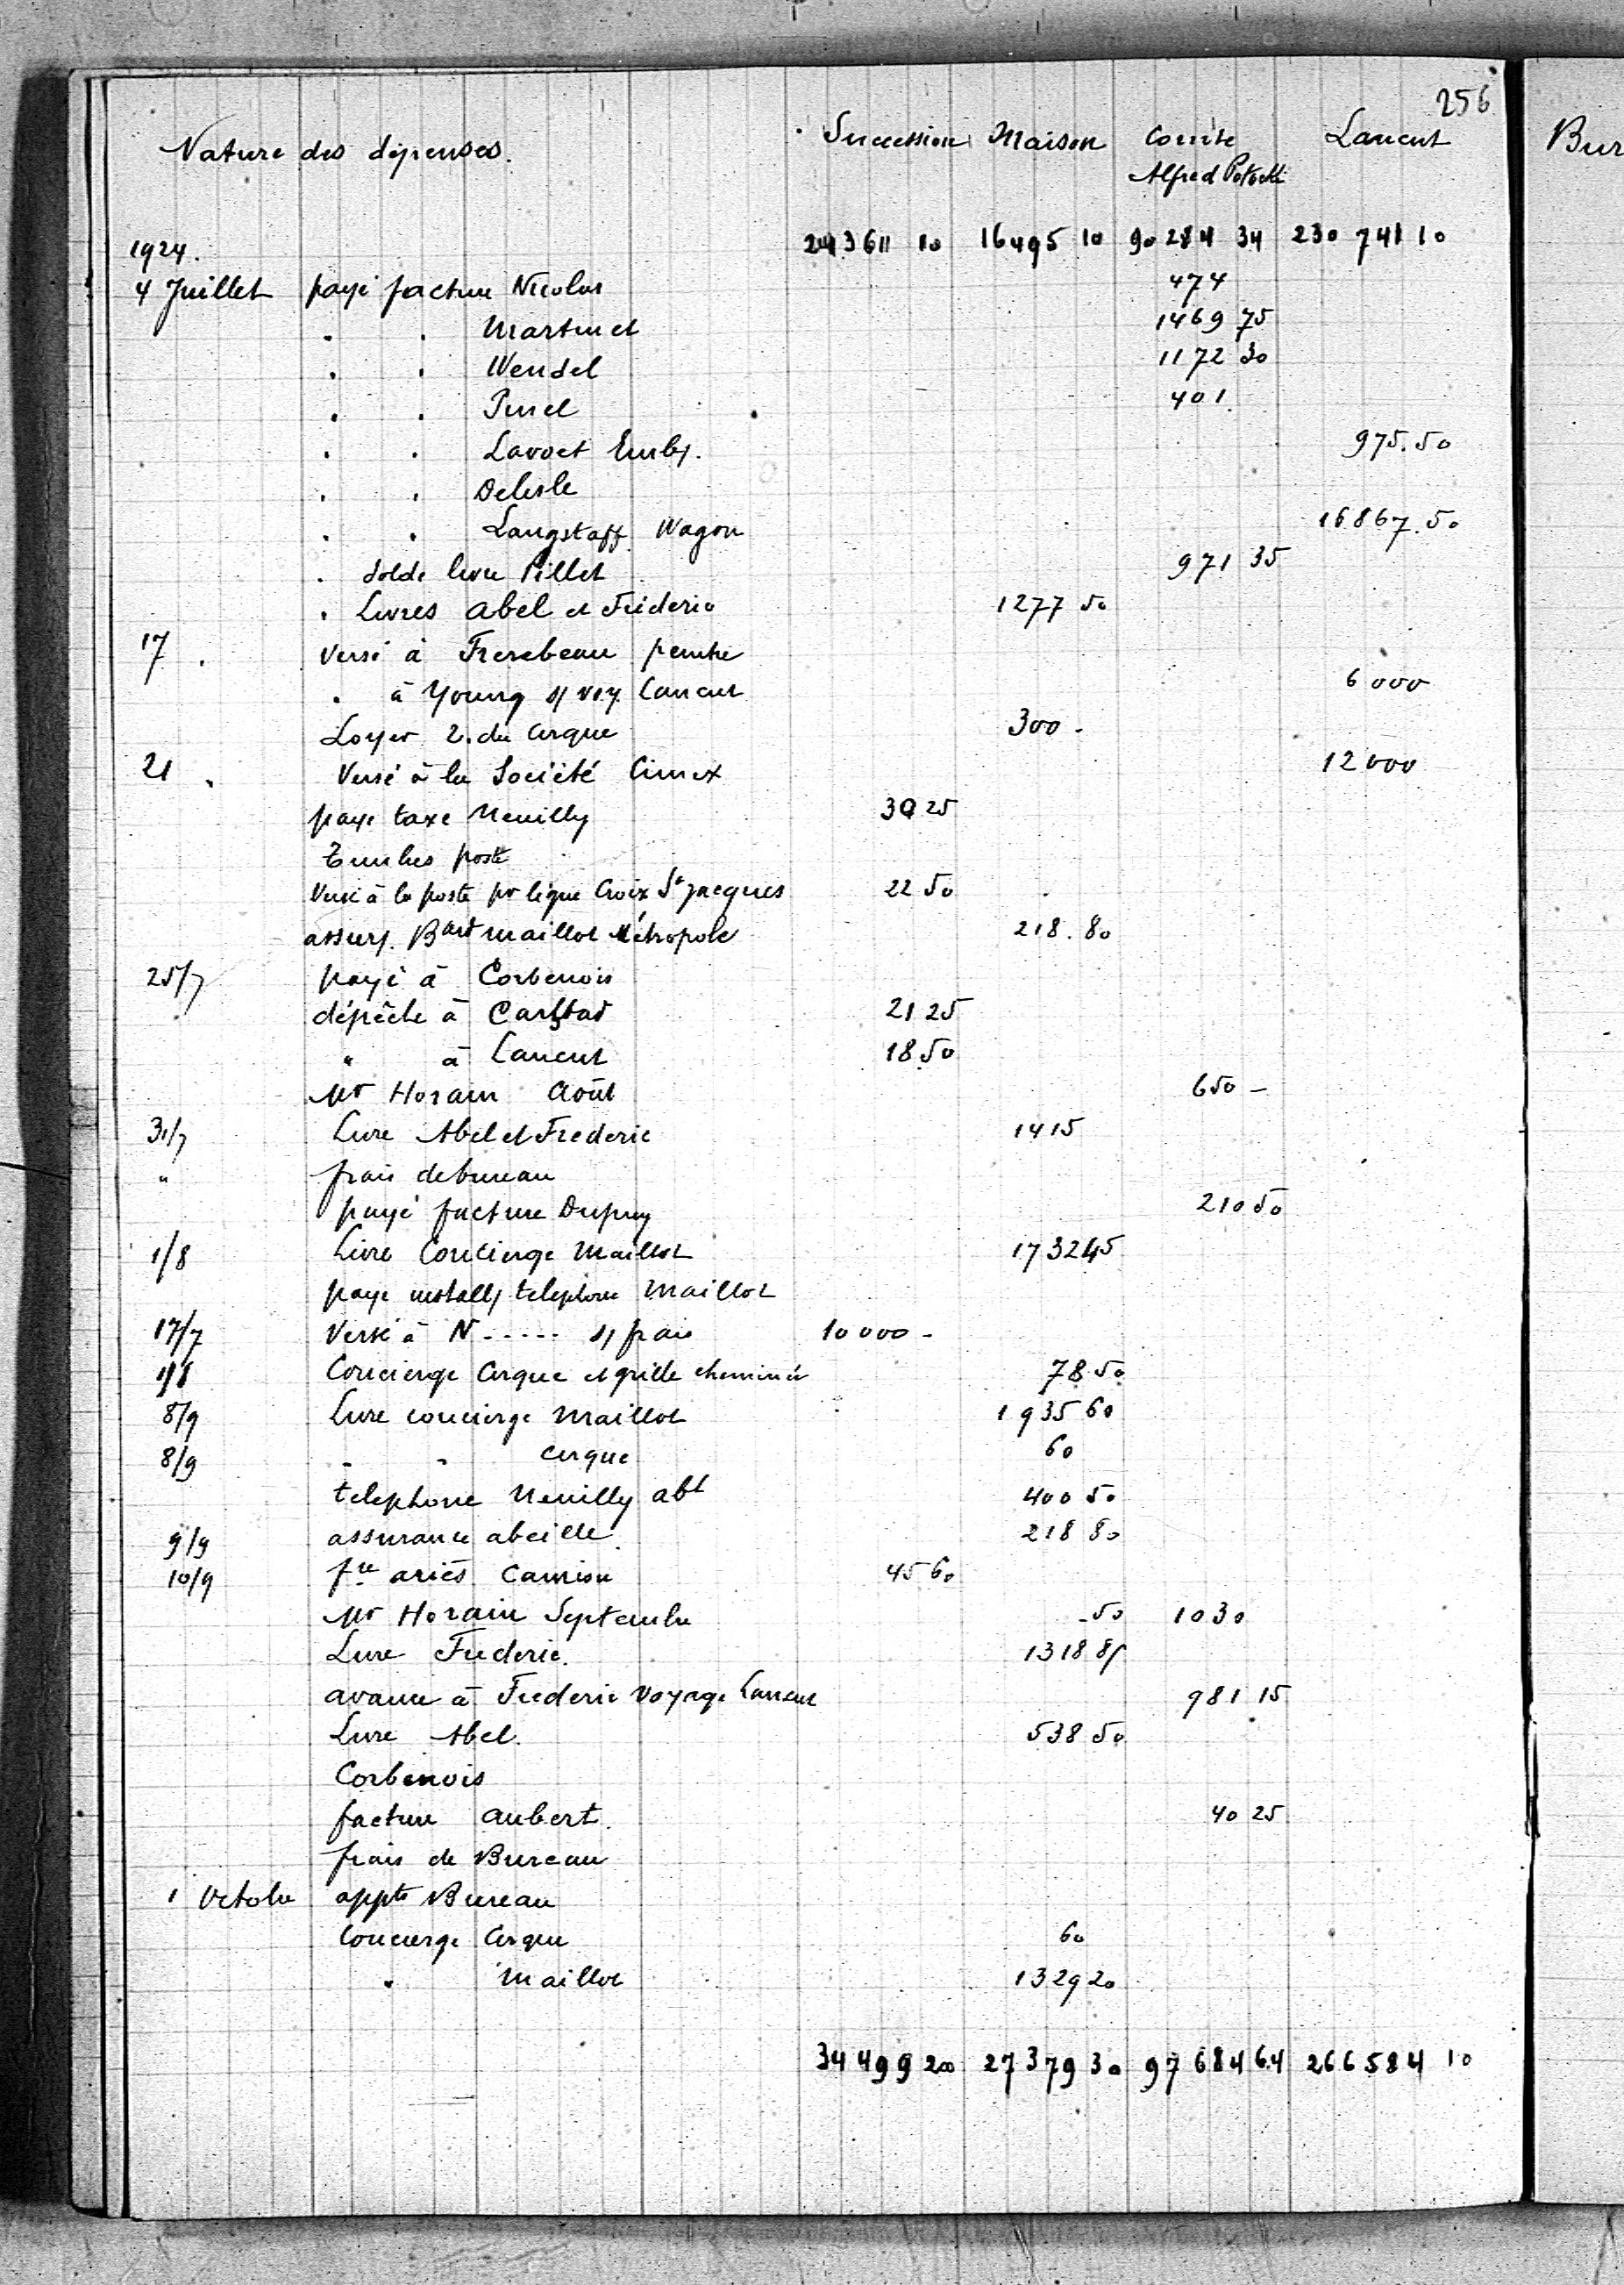 256
Nature des dépenses. Succession Maison Comte Lancut Bur
Alfred Potocki
1924. 243611 10 16495 10 90284 34 230 741 10
4 Juillet payé facture Nicolas 474
" " Martinet 1469 75
" " Wendel 1172 30
" " Pinel 401
" " Lavoet Emb/. 975.50
" " Delisle
" " Langstaff Wagon 16867.50
" Solde livre Pillet 971 35
" Livres Abel et Fréderic 1277 50
17 " Versé à Frerebeau peintre
" à Young s/ voy. Lancut 6000
Loyer 2. du Cirque 300 -
21 " Versé à la Société Cimex 12000
paye taxe Neuilly 30 25
Timbres poste
Versé à la poste pr ligue Croix St Jacques 22 50
assur/. Bard Maillot Métropole 218.80
25/7 payé à Corbenois
dépêche à Carlsbad 21 25
" à Lancut 18.50
Mr Horain Août 650 -
31/7 Livre Abel et Frederic 1415
" frais de bureau
payé facture Dupuy 210 50
1/8 Livre Concierge Maillot 1732 45
paye install/ telephone Maillot
17/7 Versé à N ----- s/ frais 10000 -
1/8 Concierge Cirque et grille cheminée 78.50
8/9 Livre concierge Maillot 1935 60
8/9 " " Cirque 60
telephone Neuilly abt 400 50
9/9 assurance abeille 218 80
10/9 fre ariès Camion 45 60
Mr Horain Septembre -50 1030
Livre Frederic 1318 85
avance à Frederic Voyage Lancut 981 15
Livre Abel. 538 50
Corbenois
facture Aubert. 40 25
frais de Bureau
1 Octobre appts Bureau
Concierge Cirque 60
" Maillot 1329 20
34 499 20 27379 30 97684 64 266584 10